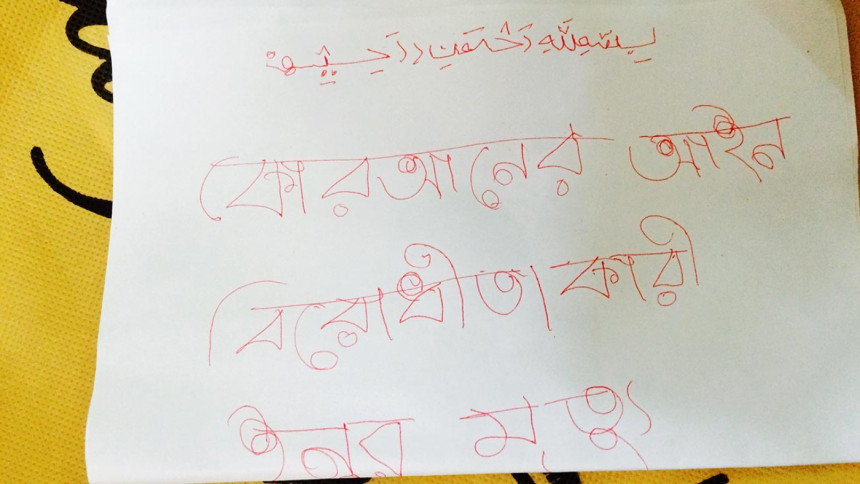 بسم الله الرحمن الرحيم
কোরআনের আইন
বিরোধীতাকারী
ইনর মৃত্যু